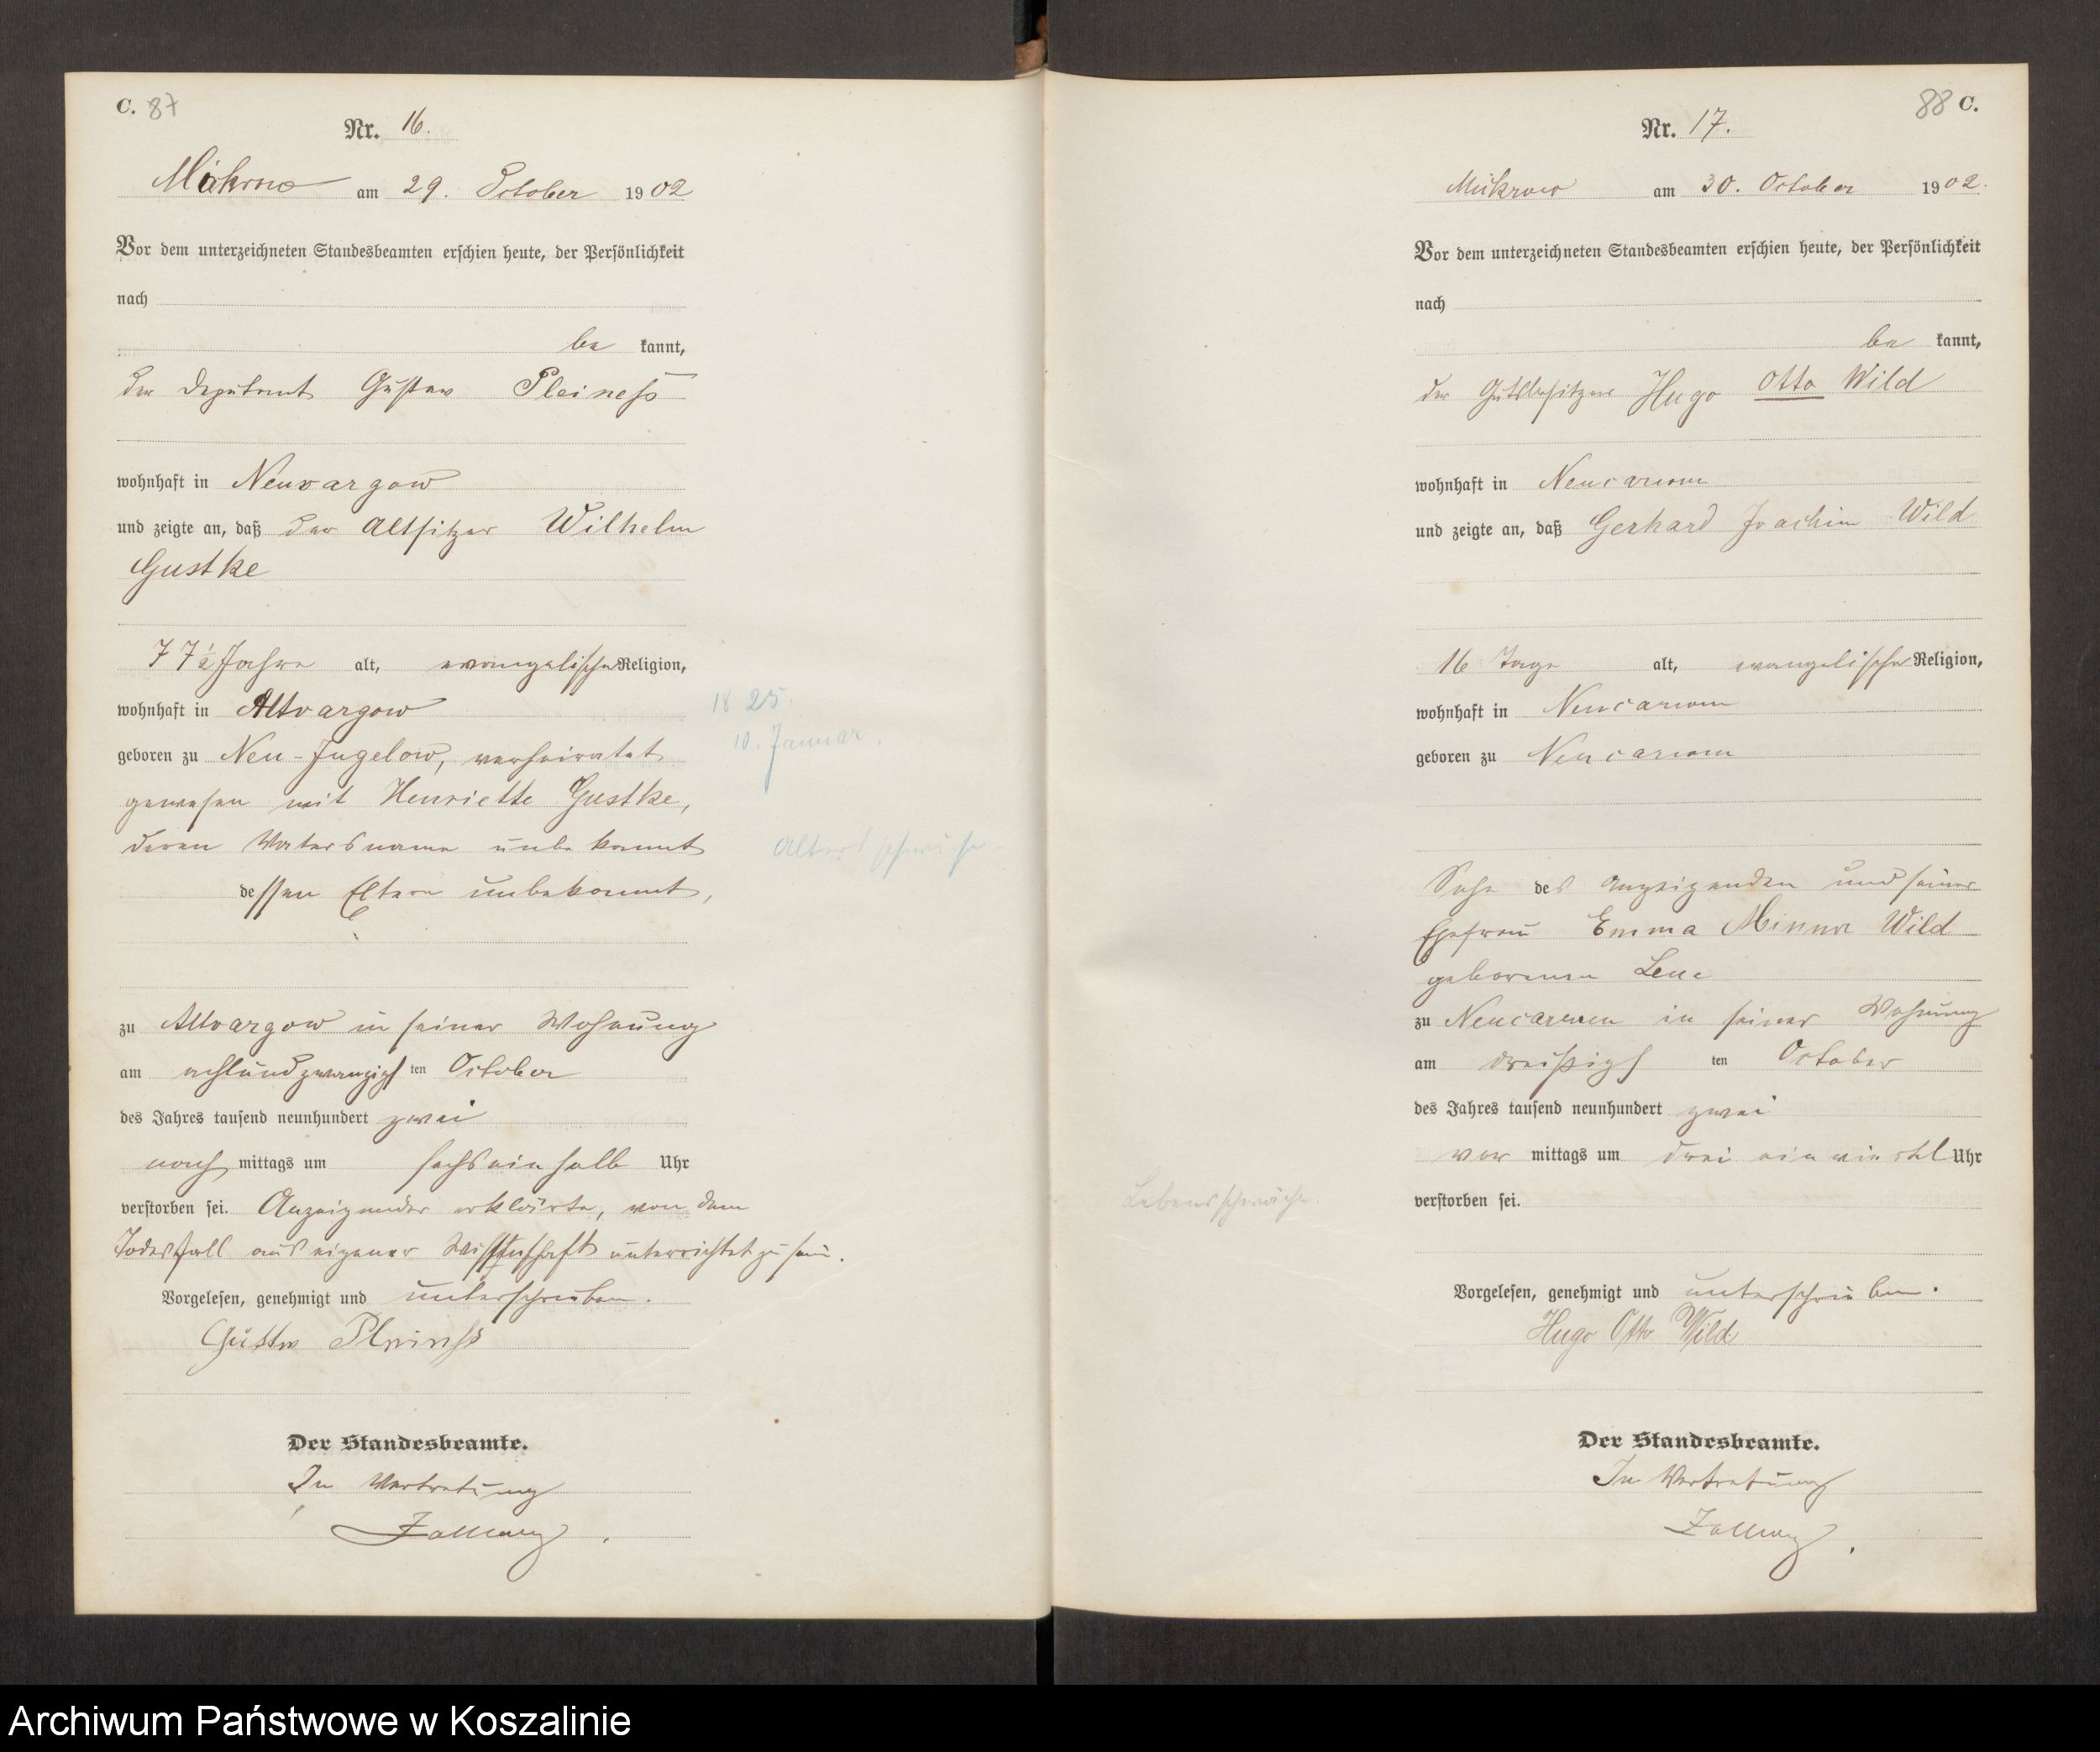 C. 87
Nr. 16.
Mickrow am 29. October 1902
Vor dem unterzeichneten Standesbeamten erschien heute, der Persönlichkeit
nach
be kannt,
der Deputant Gustav Pleineß
wohnhaft in Neuvargow
und zeigte an, daß der Altsitzer Wilhelm
Gustke
77½ Jahre alt, evangelischer Religion,
wohnhaft in Altvargow
1825.
geboren zu Neu-Jugelow, verheiratet
10. Januar.
gewesen mit Henriette Gustke,
deren Vatersname unbekannt
Altersschwäche
dessen Eltern unbekannt,
zu Altvargow in seiner Wohnung
am achtundzwanzigsten October
des Jahres tausend neunhundert zwei
nach mittags um sechseinhalb Uhr
verstorben sei. Anzeigender erklärte, von dem
Todesfall aus eigener Wissenschaft unterrichtet zu sein.
Vorgelesen, genehmigt und unterschrieben.
Gustav Pleinß
Der Standesbeamte.
In Vertretung
88 C.
Nr. 17.
Mickrow am 30. October 1902.
Vor dem unterzeichneten Standesbeamten erschien heute, der Persönlichkeit
nach
be kannt,
der Gutsbesitzer Hugo Otto Wild
wohnhaft in
und zeigte an, daß Gerhard Joachim Wild
16 Tage alt, evangelischer Religion,
wohnhaft in
geboren zu
Sohn des Anzeigenden und seiner
Ehefrau Emma Minna Wild
geborenen
zu in seiner Wohnung
am dreißigsten October
des Jahres tausend neunhundert zwei
vor mittags um drei ein viertel Uhr
Lebensschwäche.
verstorben sei.
Vorgelesen, genehmigt und unterschrieben.
Hugo Otto Wild
Der Standesbeamte.
In Vertretung
Archiwum Państwowe w Koszalinie